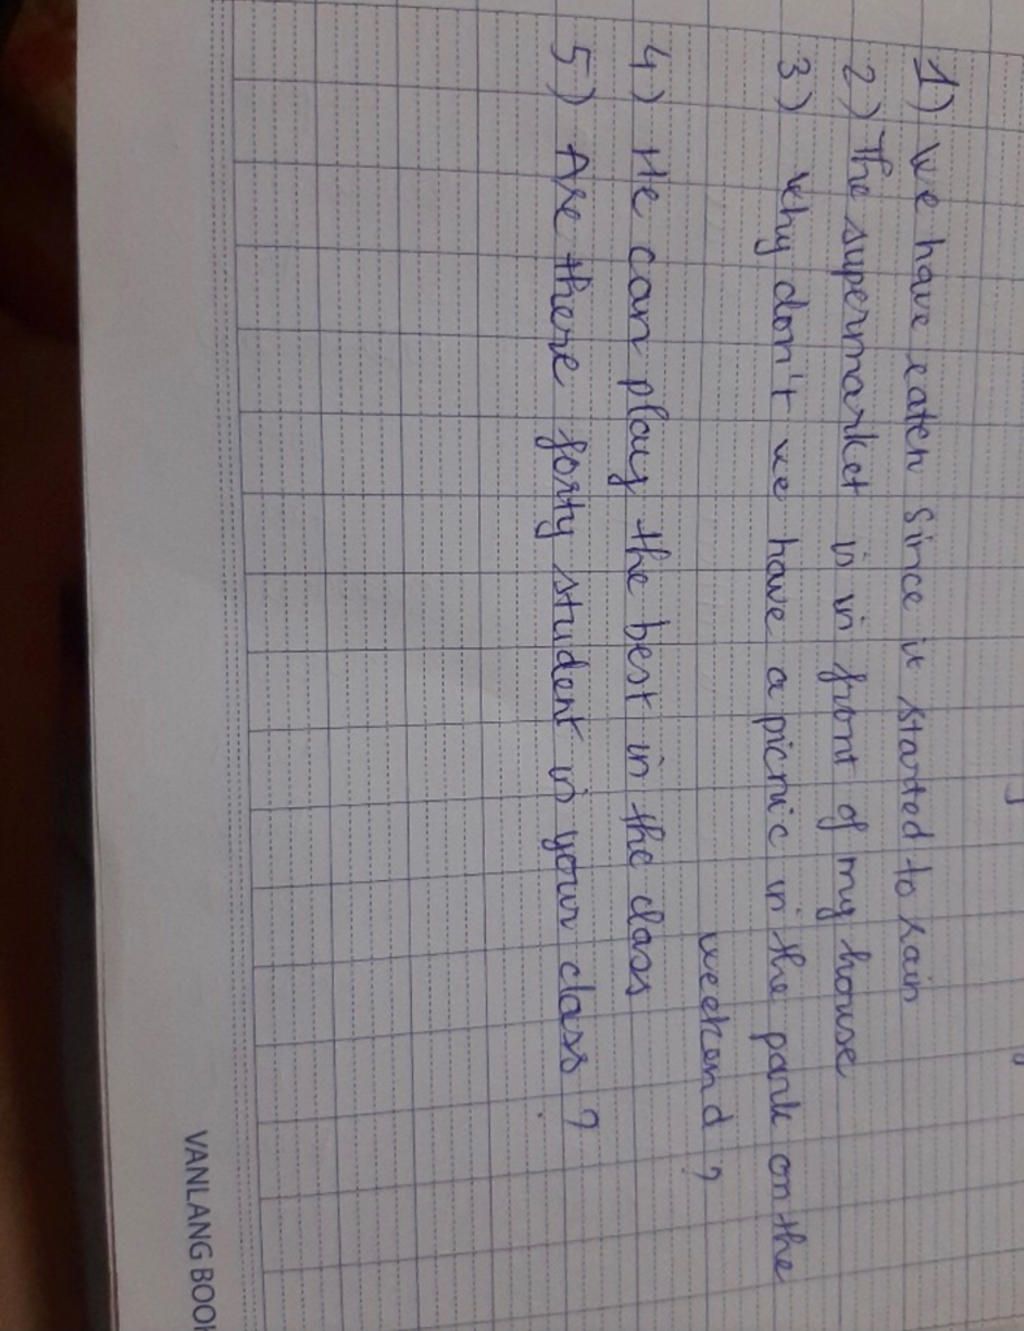 1) we have eaten since it started to rain
2) The supermarket is in front of my house
3) why don't we have a picnic in the park on the
weekend ?
4) He can play the best in the class
5) Are there forty student in your class ?
VANLANG BOO